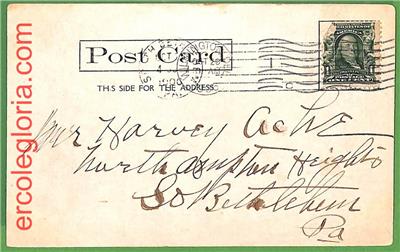 ercolegloria.com
Post Card
THIS SIDE FOR THE ADDRESS
Mr Harvey Ache
Northampton Heights
So Bethlehem
Pa